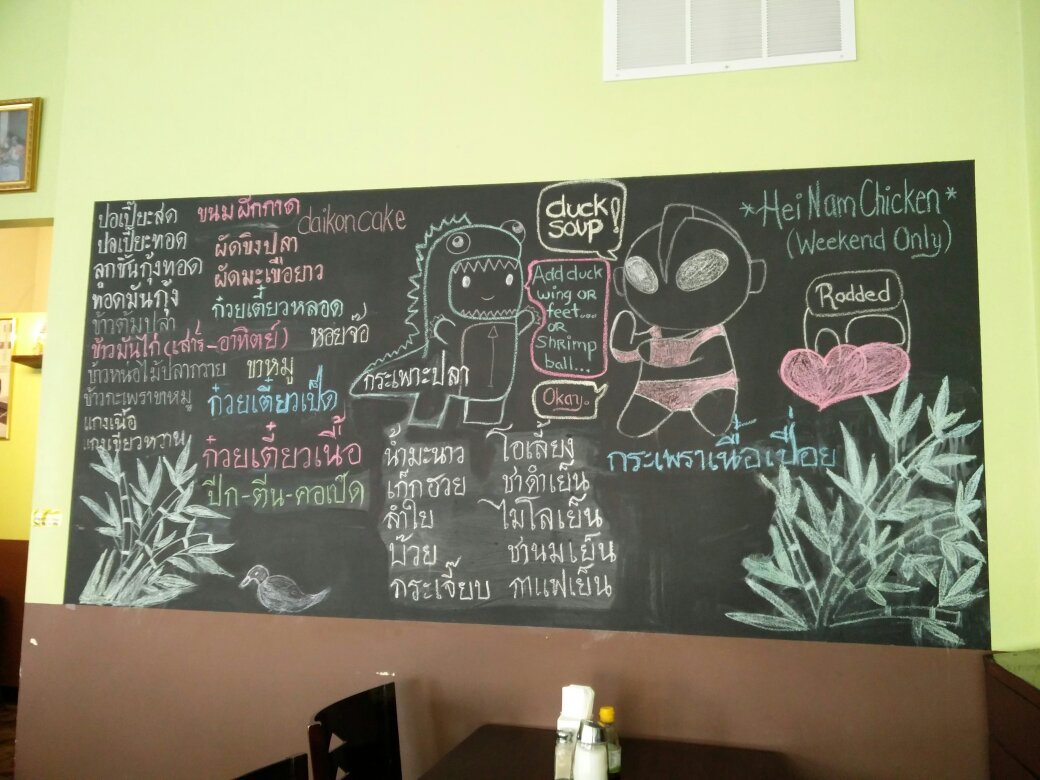 ปอเปี๊ยะสด
ปอเปี๊ยะทอด
ลูกชิ้นกุ้งทอด
ทอดมันกุ้ง
ข้าวต้มปลา
ข้าวมันไก่ (เสาร์-อาทิตย์)
ข้าวหน่อไม้ปลากวาย
ข้าวกะเพราขาหมู
แกงเนื้อ
แกงเขียวหวาน
ขนมผักกาด
daikon cake
ผัดขิงปลา
ผัดมะเขือยาว
ก๋วยเตี๋ยวหลอด
หอยจ๊อ
ขาหมู
ก๋วยเตี๋ยวเป็ด
ก๋วยเตี๋ยวเนื้อ
ปีก-ตีน-คอเป็ด
กระเพาะปลา
duck
soup!
Add duck
wing OR
feet....
OR
shrimp
ball...
Okay.
น้ำมะนาว
เก็กฮวย
ลำใย
บ๊วย
กระเจี๊ยบ
โอเลี้ยง
ชาดำเย็น
ไมโลเย็น
ชานมเย็น
กาแฟเย็น
*Hei Nam Chicken*
(Weekend Only)
Rodded
กระเพราเนื้อเปื่อย